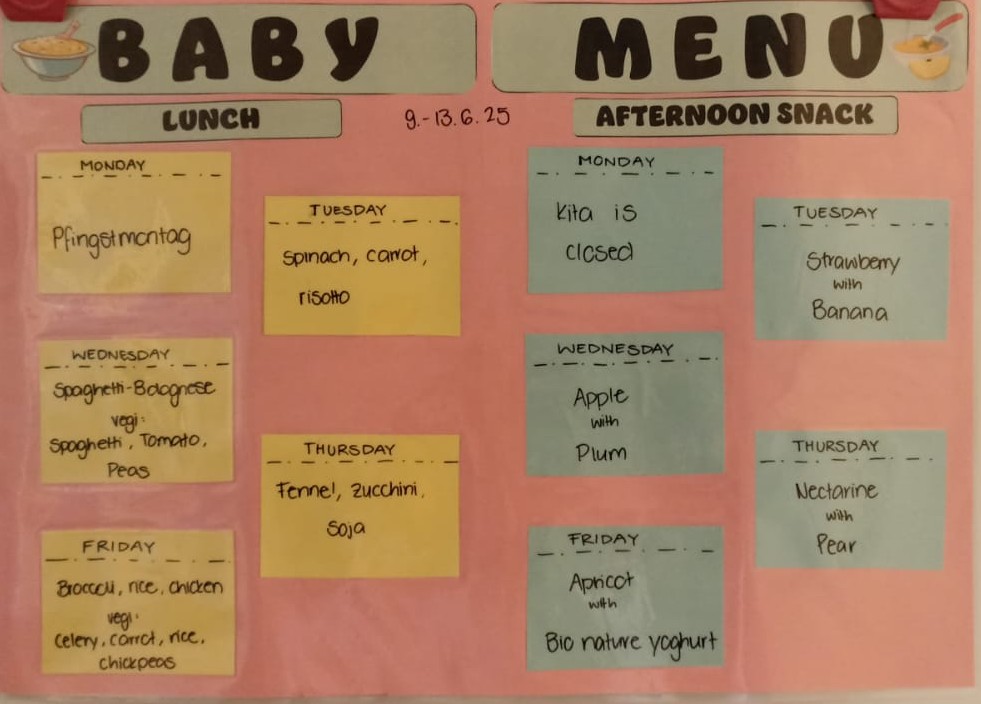 BABY MENU
LUNCH
9.-13.6.25
AFTERNOON SNACK
MONDAY
Pfingstmontag
TUESDAY
Spinach, carrot,
risotto
WEDNESDAY
Spaghetti-Bolognese
vegi:
Spaghetti, Tomato,
Peas
THURSDAY
Fennel, zucchini,
Soja
FRIDAY
Broccoli, rice, chicken
vegi:
celery, carrot, rice,
chickpeas
MONDAY
Kita is
closed
TUESDAY
Strawberry
with
Banana
WEDNESDAY
Apple
with
Plum
THURSDAY
Nectarine
with
Pear
FRIDAY
Apricot
with
Bio nature yoghurt